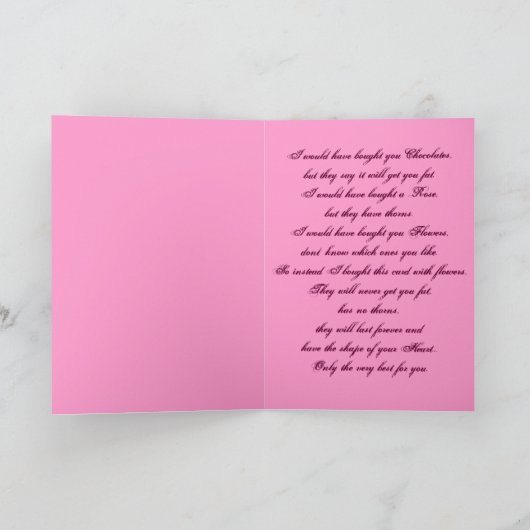 I would have bought you Chocolates,
but they say it will get you fat.
I would have bought a Rose,
but they have thorns.
I would have bought you Flowers,
dont know which ones you like.
So instead I bought this card with flowers.
They will never get you fat,
has no thorns,
they will last forever and
have the shape of your Heart.
Only the very best for you.